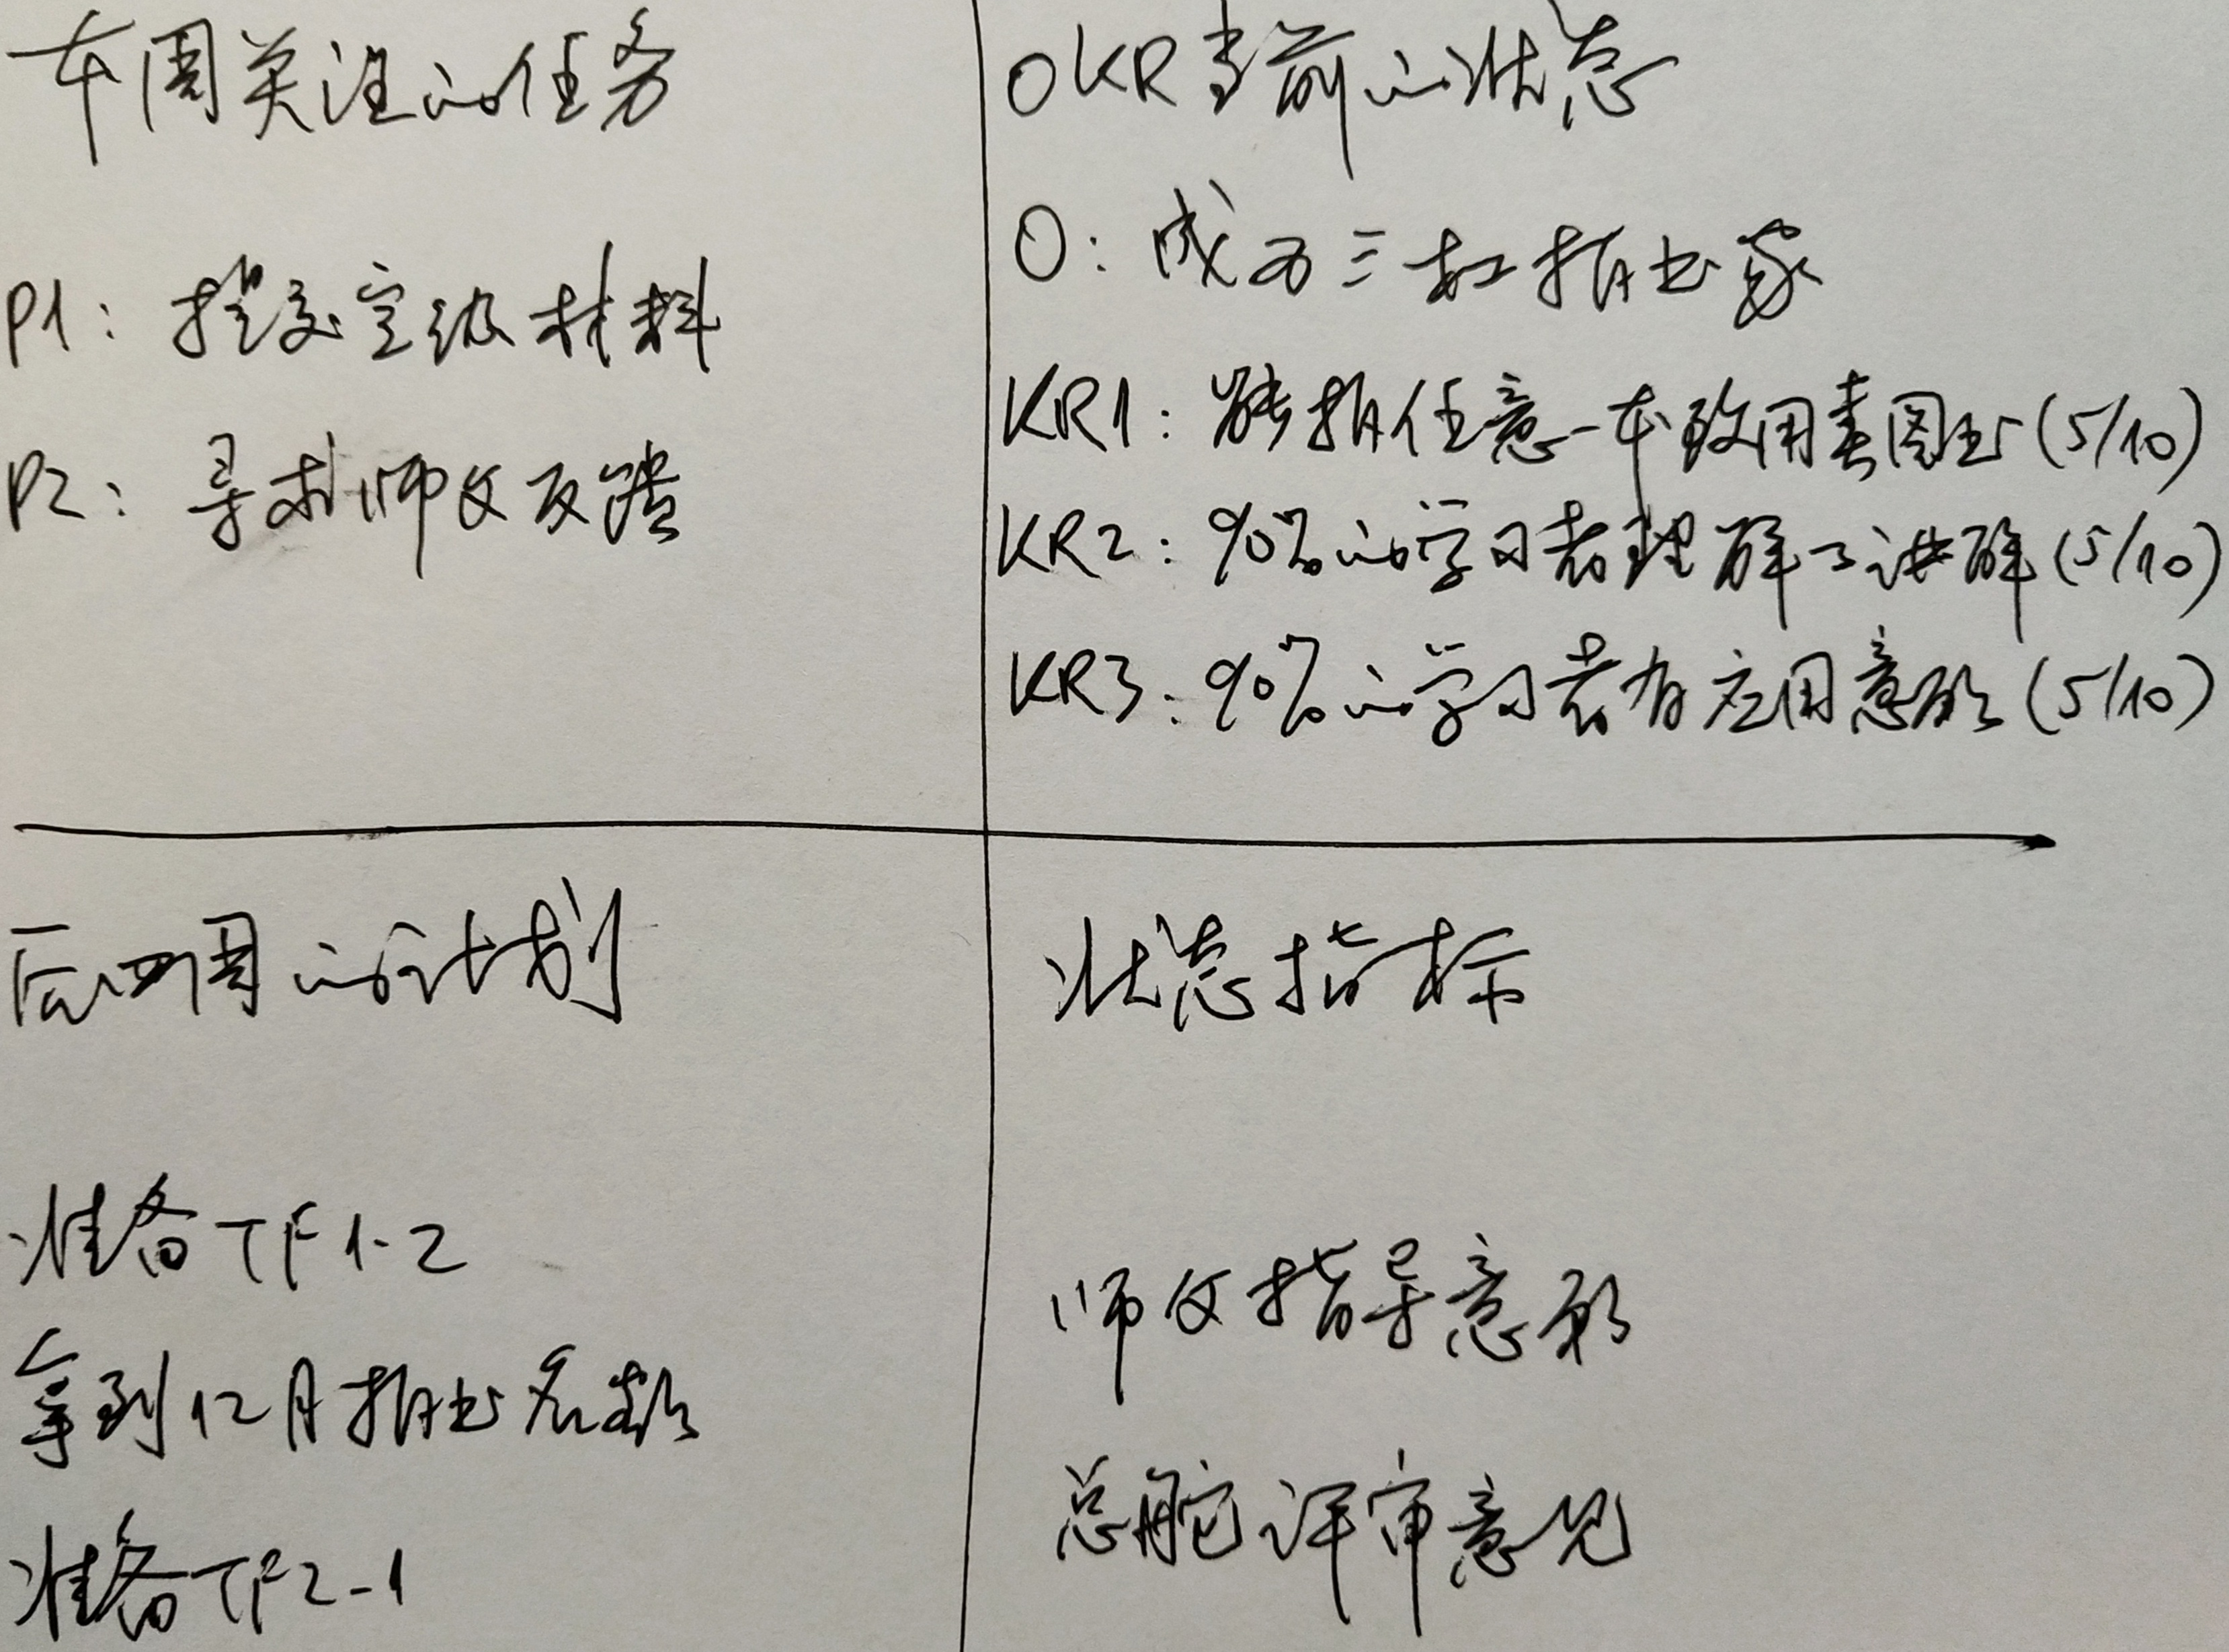 本周关注的任务
P1：提交定级材料
P2：寻求师父反馈
OKR当前的状态
O：成为三杠拍书家
KR1：能拍任意一本致用类图书(5/10)
KR2：90%的学习者理解了讲解(5/10)
KR3：90%的学习者有应用意愿(5/10)
后四周的计划
准备TF1-2
拿到12月拍书名额
准备TF2-1
状态指标
师父指导意愿
总舵评审意见